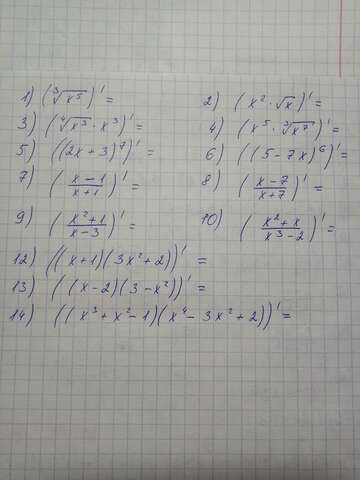 1) (∛x⁵)' =    2) (x² · √x)' =
3) (∜x³ · x³)' =    4) (x⁵ · ∛x⁷)' =
5) ((2x + 3)⁷)' =    6) ((5 - 7x)⁶)' =
7) ((x - 1)/(x + 1))' =    8) ((x - 7)/(x + 7))' =
9) ((x² + 1)/(x - 3))' =    10) ((x² + x)/(x³ - 2))' =
12) ((x + 1)(3x² + 2))' =
13) ((x - 2)(3 - x²))' =
14) ((x³ + x² - 1)(x⁴ - 3x² + 2))' =